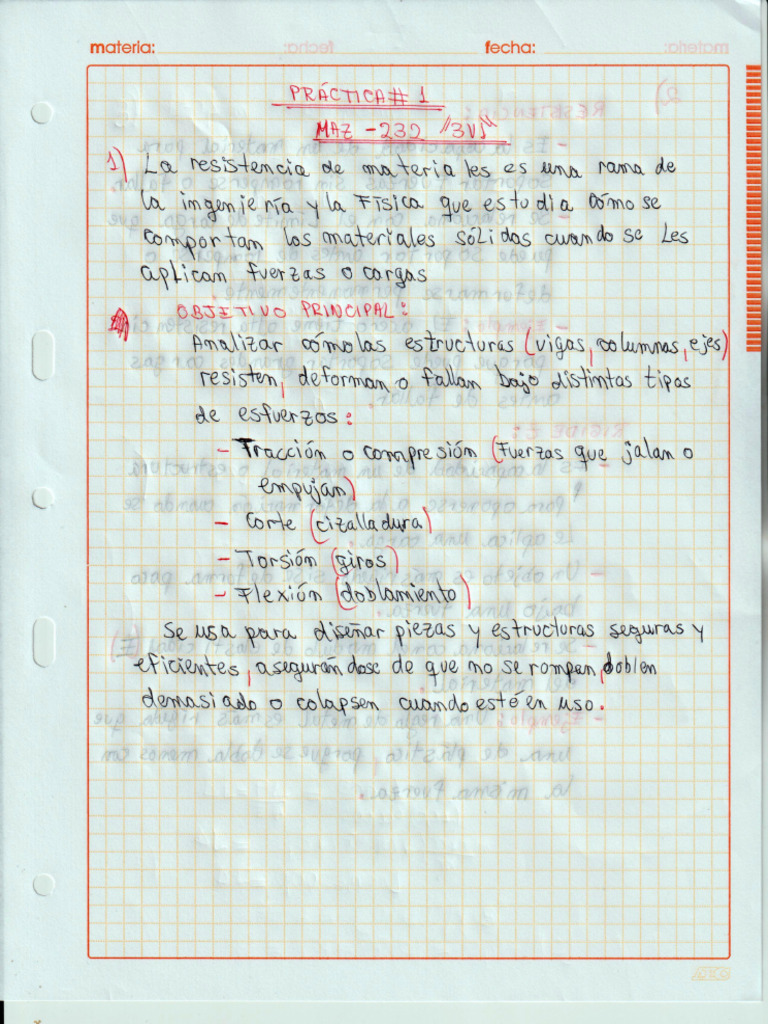 materia: fecha:
PRÁCTICA # 1
MAZ - 232 "3V1"
1) La resistencia de materiales es una rama de
la imgeniería y la Física que estudia cómo se
comportan los materiales sólidos cuando se Les
aplican fuerzas o cargas
OBJETIVO PRINCIPAL:
Analizar cómo las estructuras (vigas, columnas, ejes)
resisten, deforman o fallan bajo distintas tipos
de esfuerzos:
- Tracción o compresión (Fuerzas que jalan o
empujan)
- Corte (cizalladura)
- Torsión (giros)
- Flexión (doblamiento)
Se usa para diseñar piezas y estructuras seguras y
eficientes, asegurándose de que no se rompan, doblen
demasiado o colapsen cuando esté en uso.